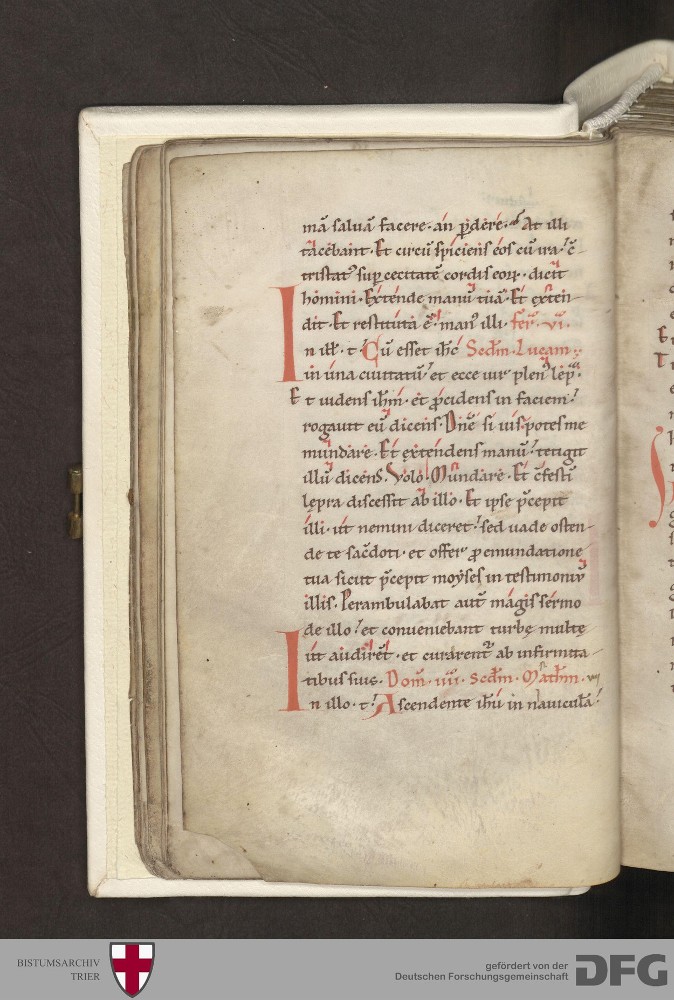 mā saluā facere · an ꝑdere · At illi
tacebant · Et circū spiciens eos cū ira · c̄
tristatꝰ sup cecitatē cordis eoꝝ · dicit
homini · Extende manū tuā · Et exten-
dit · Et restituta ē manꝰ illi · fer̄ · vi ·
In ill̄ · t · Cū esset ih̄c Sec̄dm · Lucam ·
in una ciuitatū · et ecce uir plenꝰ lep̄ ·
Et uidens ih̄m · et ꝓcidens in faciem ·
rogauit eū dicens · Dn̄e si uis potes me
mundare · Et extendens manū · tetigit
illū dicens · Volo · Mundare · Et c̄festī
lepra discessit ab illo · Et ipse p̄cepit
illi · ut nemini diceret · sed uade osten-
de te sac̄doti · et offer ꝓ emundatione
tua sicut p̄cepit moyses in testimoniū
illis · Perambulabat aut̄ magis sermo
de illo · et conueniebant turbę multę
ut audirēt · et curarentᷣ ab infirmita-
tibus suis · Dom̄ · iiii · Sec̄dm · Math̄m · vii
In illo · t · Ascendente ih̄u in nauiculā ·
E
BISTUMSARCHIV
TRIER
gefördert von der
Deutschen Forschungsgemeinschaft
DFG